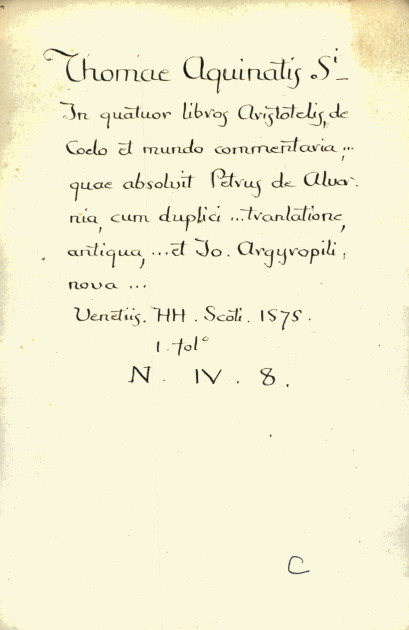 Thomae Aquinatis Sⁱ_
In quatuor libros Aristotelis, de
Coelo et mundo commentaria,...
quae absolvit Petrus de Alver-
nia, cum duplici ... tranlatione,
antiqua, ... et Io. Argyropili,
nova ...
Venetiis. HH. Scoti. 1575.
1. fol°
N. IV. 8.
C